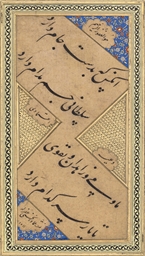 آنکس که بدست جام دارد
سلطانی جم مدام دارد
ما و می و زاهدان و تقوی
تا یار سر کدام دارد